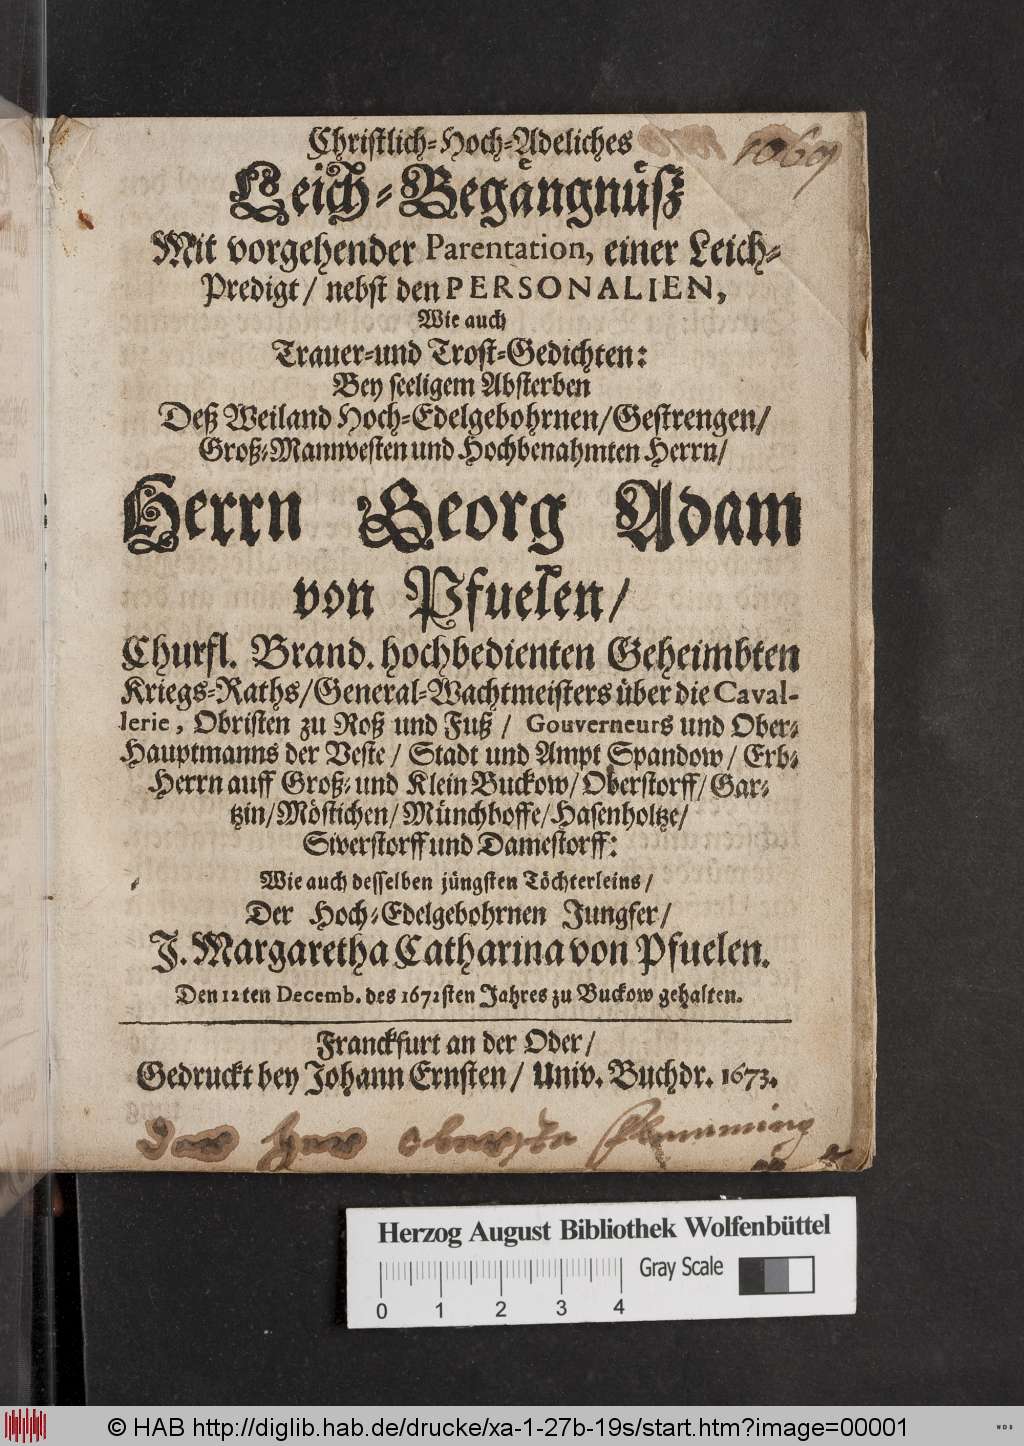 1069
Christlich-Hoch-Adeliches
Leich-Begängnüß
Mit vorgehender Parentation, einer Leich-
Predigt/ nebst den PERSONALIEN,
Wie auch
Trauer-und Trost-Gedichten:
Bey seeligem Absterben
Deß Weiland Hoch-Edelgebohrnen/Gestrengen/
Groß-Mannvesten und Hochbenahmten Herrn/
Herrn Georg Adam
von Pfuelen/
Churfl. Brand. hochbedienten Geheimbten
Kriegs-Raths/General-Wachtmeisters über die Caval-
lerie, Obristen zu Roß und Fuß/ Gouverneurs und Ober-
Hauptmanns der Veste/ Stadt und Ampt Spandow/ Erb-
Herrn auff Groß- und Klein Buckow/ Oberstorff/ Gar-
tzin/Möstichen/Münchhoffe/Hasenholtze/
Siverstorff und Damestorff:
Wie auch desselben jüngsten Töchterleins/
Der Hoch-Edelgebohrnen Jungfer/
J. Margaretha Catharina von Pfuelen.
Den 12ten Decemb. des 1672sten Jahres zu Buckow gehalten.
Franckfurt an der Oder/
Gedruckt bey Johann Ernsten/ Univ. Buchdr. 1673.
Der Her Oberste Flemming
Herzog August Bibliothek Wolfenbüttel
Gray Scale
0 1 2 3 4
© HAB http://diglib.hab.de/drucke/xa-1-27b-19s/start.htm?image=00001